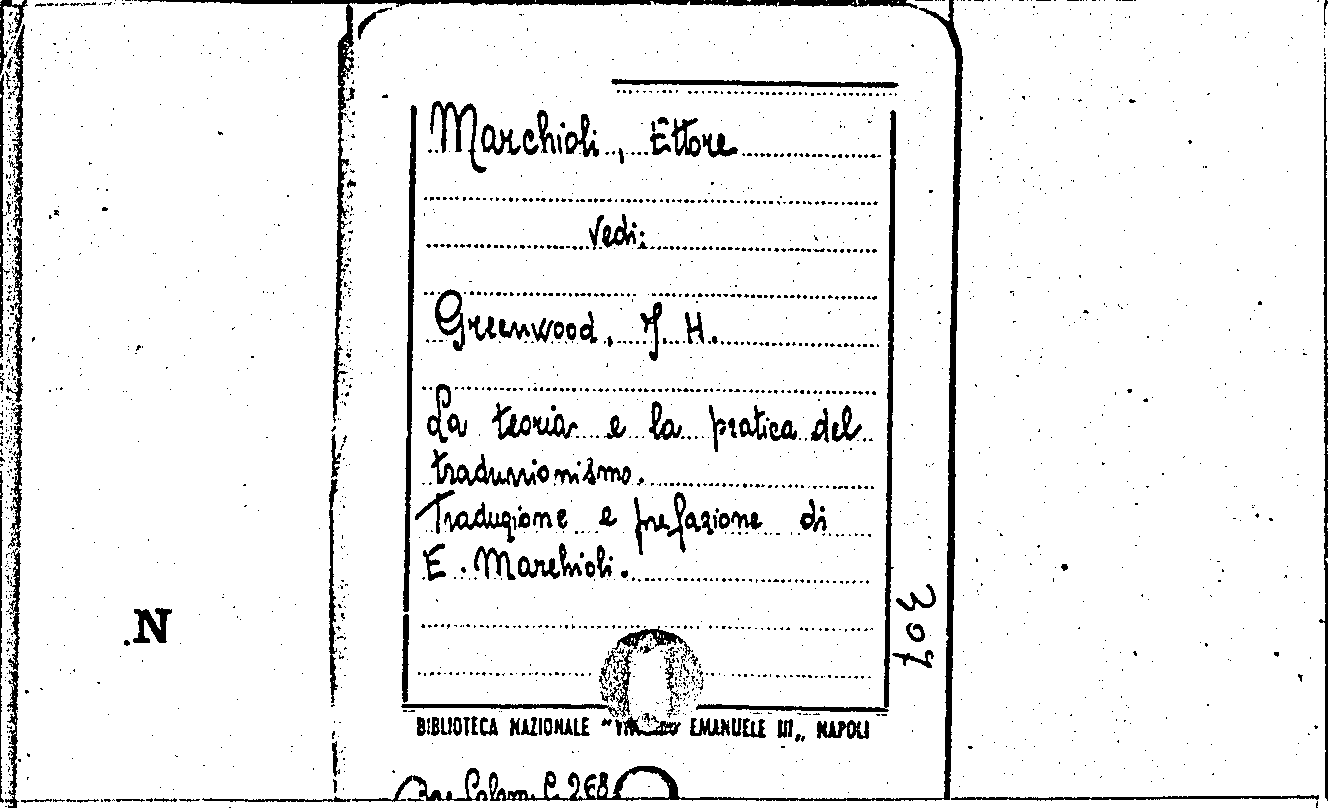 Marchioli, Ettore
Vedi:
Greenwood, J. H.
La teoria e la pratica del
tradunionismo.
Traduzione e prefazione di
E. Marchioli.
307
.N
BIBLIOTECA NAZIONALE "VITTORIO EMANUELE III„ NAPOLI